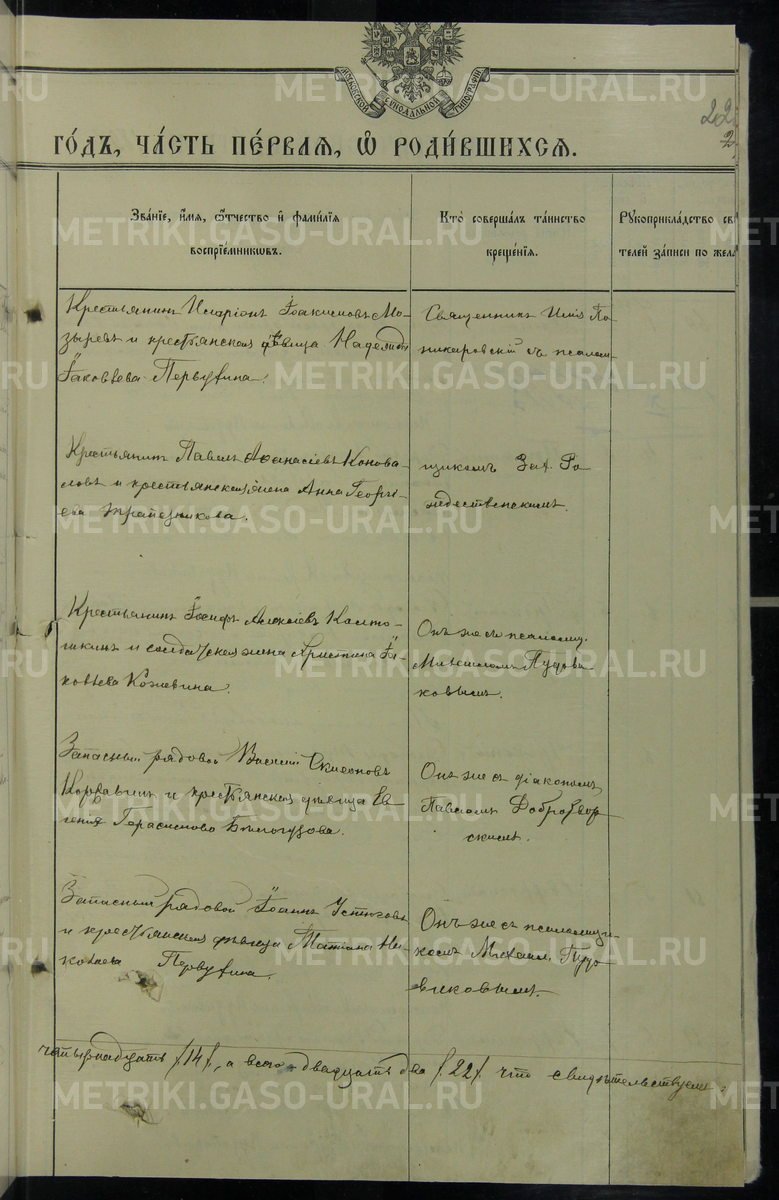 МОСКОВСКОЙ СѴНОДАЛЬНОЙ ТИПОГРАФІИ
22
2
ГО́ДЪ, ЧА́СТЬ ПЕ́РВАЯ, Ѡ҆ РОДИ́ВШИХСЯ.
Зва́нїе, и҆́мя, ѻ҆́тчество и҆ фами́лїя
воспрїе́мниковъ.
Кто̀ соверша́лъ та́инство
креще́нїя.
Рукоприкла́дство св
телей за́писи по жела
Крестьянинъ Иларіонъ Іоакимовъ Мо-
зыревъ и крестьянская дѣвица Надежда
Іаковлева Первухина.
Священникъ Илія По
никаровскій съ псалом-
Крестьянинъ Павелъ Аѳанасіевъ Конова-
ловъ и крестьянская жена Анна Георгі-
ева Трапезникова.
щикомъ Зах. Ро
ждественскимъ.
Крестьянинъ Іосифъ Алексіевъ Калто-
шкинъ и солдатская жена Христина Іа-
ковлева Кожевина.
Онъ же съ псаломщ.
Михаиломъ Пудови
ковымъ.
Запасный рядовой Василій Симеоновъ
и крестьянская дѣвица Ев-
генія Герасимова Бѣлоглазова.
Онъ же съ діакономъ
Павломъ Добротвор
скимъ.
Запасный рядовой Іоаннъ Устюговъ
и крестьянская дѣвица Татіана Ни-
колаева Первухина.
Онъ же съ псаломщи-
комъ Михаил. Пудо
виковымъ.
четырнадцать /14/, а всего двадцать два /22/ что свидѣтельствуемъ:
METRIKI.GASO-URAL.RU